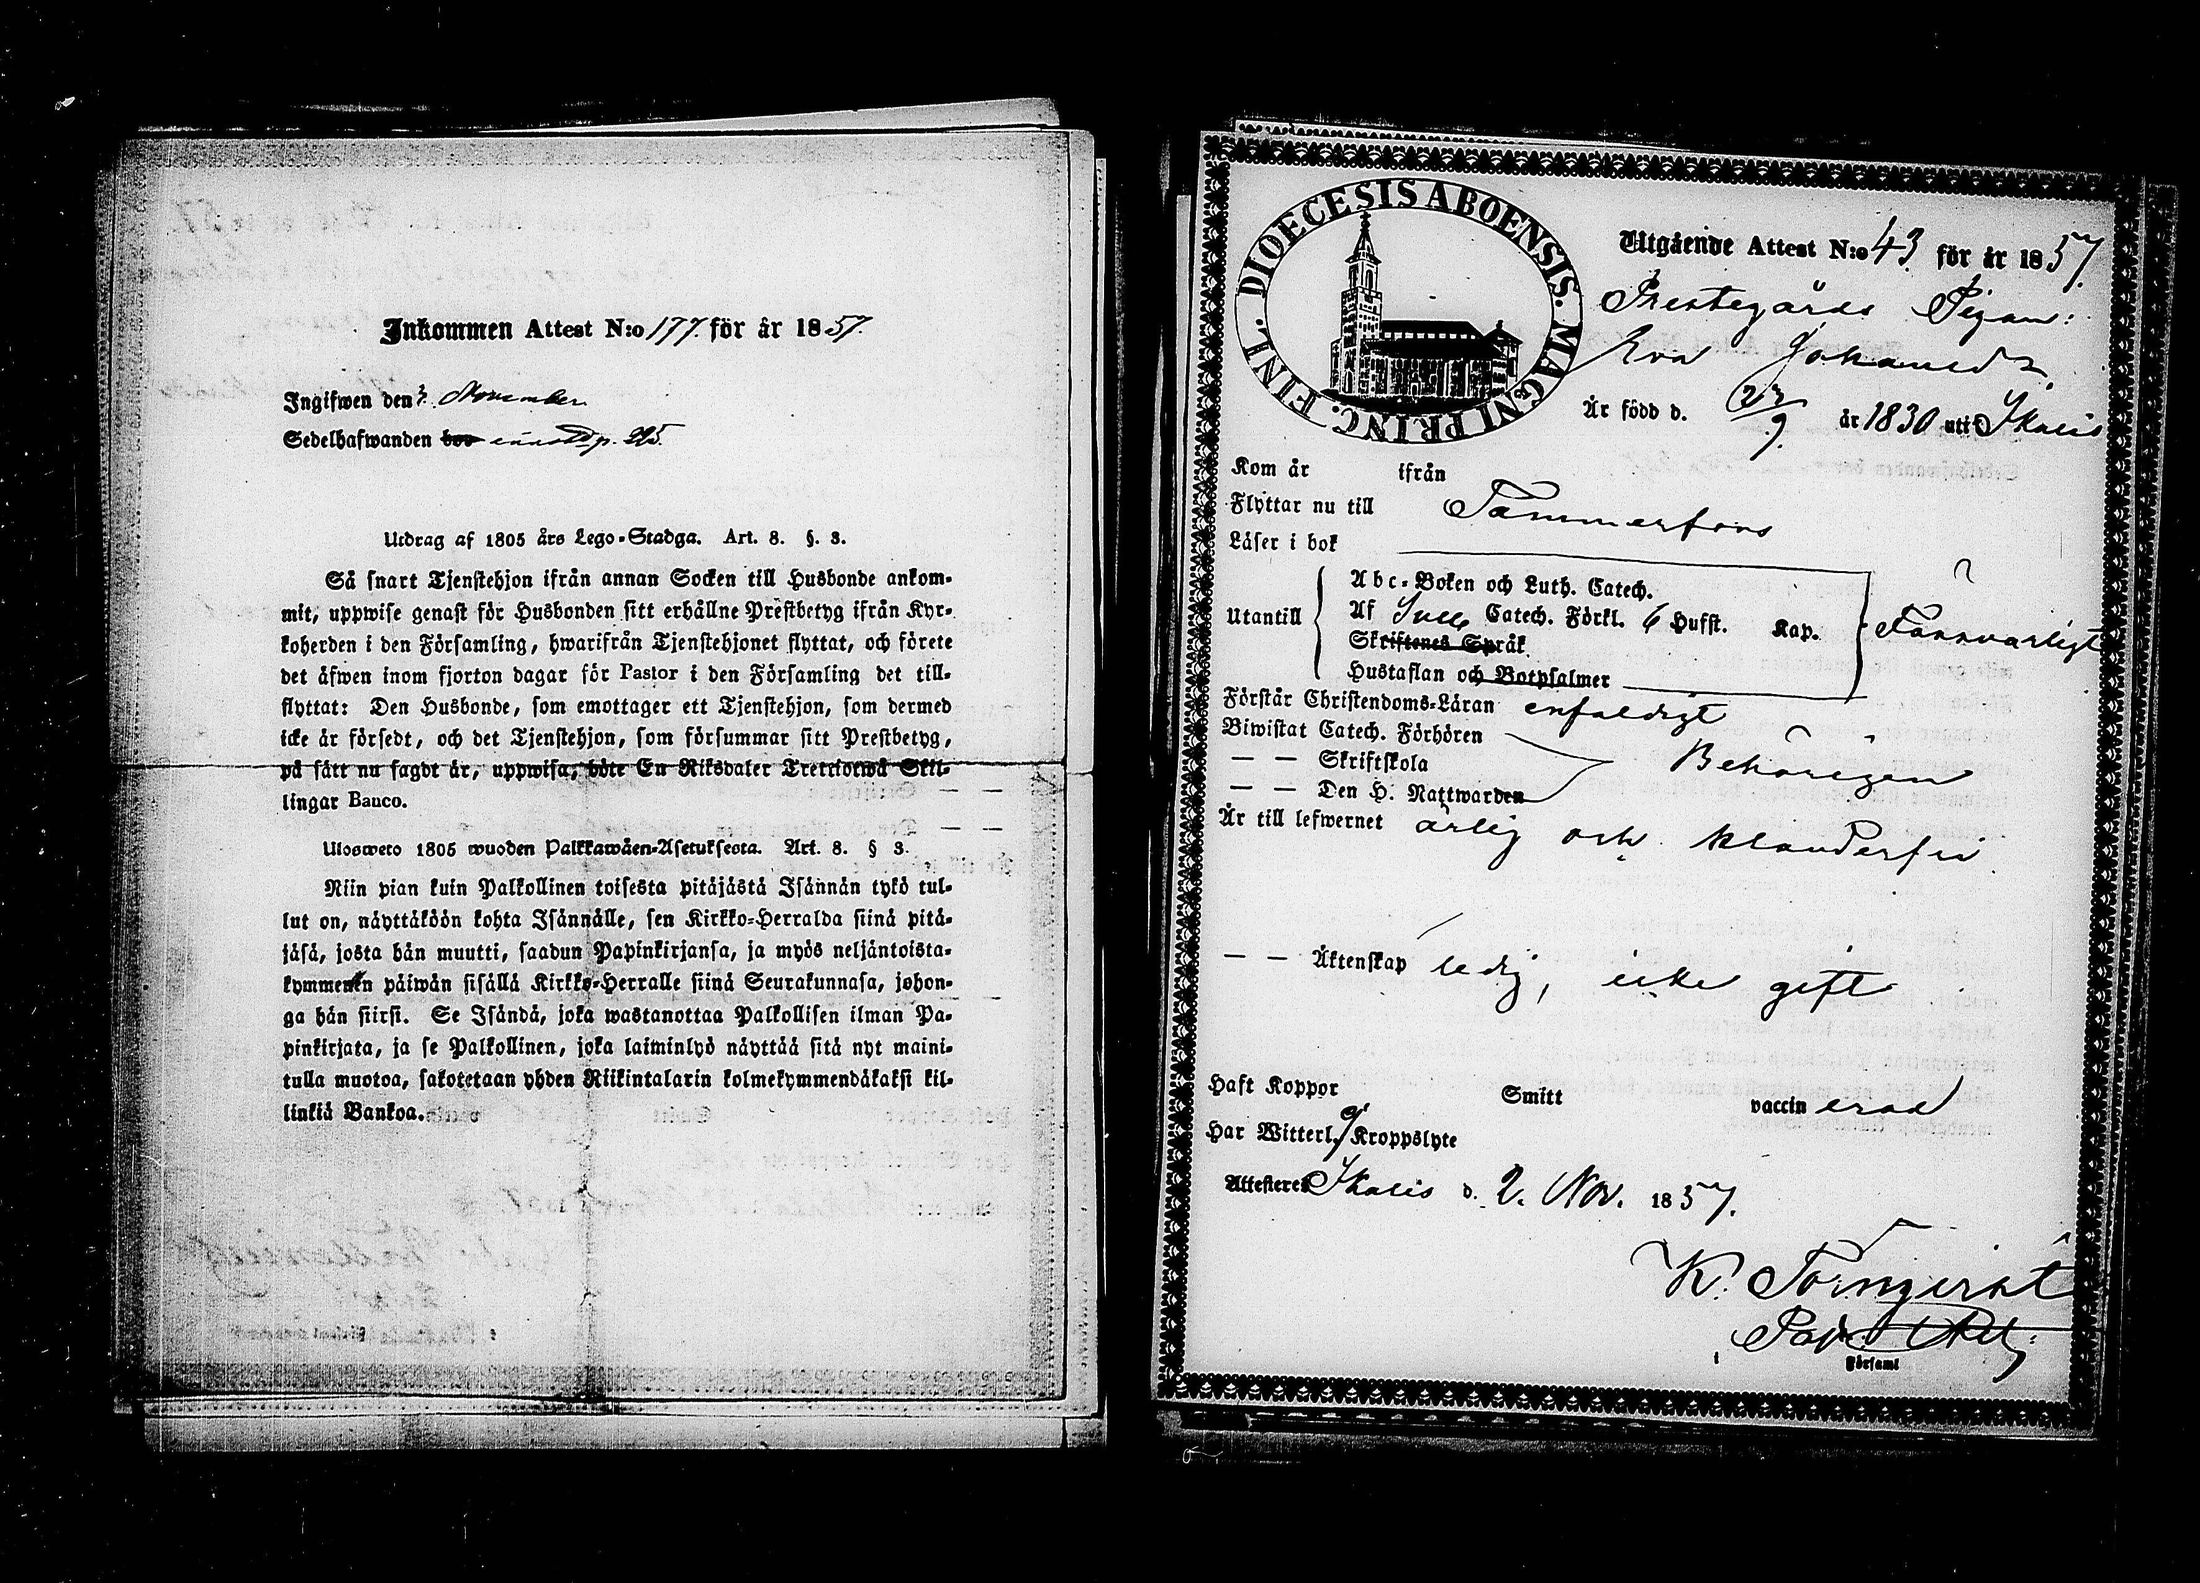 Inkommen Attest N:o 177. för år 1857.
Ingifwen den 3. November
Sedelhafwanden bor p. 225.
Utdrag af 1805 års Lego-Stadga. Art. 8. §. 3.
Så snart Tjenstehjon ifrån annan Socken till Husbonde ankom-
mit, uppwise genast för Husbonden sitt erhållne Prestbetyg ifrån Kyr-
koherden i den Församling, hwarifrån Tjenstehjonet flyttat, och förete
det äfwen inom fjorton dagar för Pastor i den Församling det till-
flyttat: Den Husbonde, som emottager ett Tjenstehjon, som dermed
icke är försedt, och det Tjenstehjon, som försummar sitt Prestbetyg,
på sätt nu sagdt är, uppwisa, böte En Riksdaler Trettiotwå Skil-
lingar Banco.
Ulosweto 1805 wuoden Palkkawäen-Asetuksesta. Art. 8. § 3.
Niin pian kuin Palkollinen toisesta pitäjästä Isännän tykö tul-
lut on, näyttäköön kohta Isännälle, sen Kirkko-Herralda siinä pitä-
jäsä, josta hän muutti, saadun Papinkirjansa, ja myös neljäntoista-
kymmenen päiwän sisällä Kirkko-Herralle siinä Seurakunnasa, johon-
ga hän siirsi. Se Isändä, joka wastanottaa Palkollisen ilman Pa-
pinkirjata, ja se Palkollinen, joka laiminlyö näyttää sitä nyt maini-
tulla muotoa, sakotetaan yhden Riikintalarin kolmekymmendäkaksi kil-
linkiä Bankoa.
DIOECESIS ABOENSIS. MAGNI PRINC. FINL.
Utgående Attest N:o 43. för år 1857.
Prestegårds Pigan:
Eva Johansd:r
Är född d. 23/9. år 1830 uti Ikalis
Kom år ifrån
Flyttar nu till Tammerfors
Läser i bok
Utantill
Abc-Boken och Luth. Catech.
Af Catech. Förkl. 6 Hufst. Kap. Försvarligt
Skriftenes Språk
Hustaflan och Botpsalmer
Förstår Christendoms-Läran enfaldigt
Biwistat Catech. Förhören
— — Skriftskola Behörigen
— — Den H. Nattwarden
Är till lefwernet ärlig och klanderfri
— — Äktenskap ledig, icke gift
Haft Koppor Smitt vaccinerad
Har Witterl. Kroppslyte
Attesteres Ikalis d. 2. Nov. 1857.
K. Törnqvist
Församl